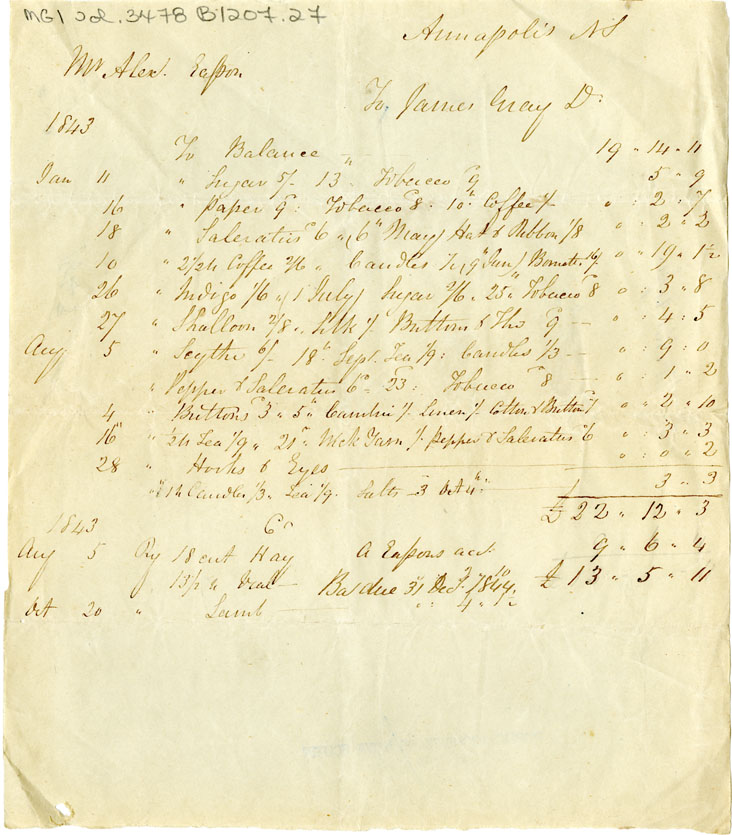 MG1 Vol. 3478 B1207.27
Annapolis NS
Mr Alex. Easson
To James Gray Dr
1843
To Balance 19 " 14 " 11
Jan 11 " Sugar 5/- 13 " Tobacco 9 5 " 9
16 " Paper 9 : Tobacco 8 : 10 " Coffee / " : 2 " 7
18 " Saleratus 6 " 6 " May Hat & Ribbon 1/8 " : 2 " 2
10 " 2 1/2 lb Coffee 2/6 " Candles June Bonnett " : 19 " 1 1/2
26 " Indigo 1/6 " 1 July Sugar 2/6 " 25 " Tobacco 8 " : 3 " 8
27 " Shalloon 2/8 " Silk /. Buttons & 9 — " : 4 : 5
Aug 5 " Scythe 6/- 18th Sept. Tea 1/9 : Candles 1/3 — " : 9 : 0
" Pepper & Saleratus 6 - 23 : Tobacco 8 — " : 1 " 2
4 " Buttons 3 " 5 " Cambric /. Linen /. Cotton & Button " " 2 " 10
16 " 1/2 lb Tea 1/9 " 21 " Yarn /. Pepper & Saleratus 6 " : 3 " 3
28 " Hooks & Eyes — " : 0 " 2
" 1 lb Candles 1/3 " Tea 1/9. Salts 3 Oct 4th : 1 3 " 3
£ 22 " 12 " 3
1843 Cr
Aug 5 By 18 cwt Hay A Eassons act. 9 " 6 " 4
13 1/2 lb Veal — Bal due 31 Dec 1844 £ 13 " 5 " 11
Oct 20 " Lamb — " : 4 " 1/2